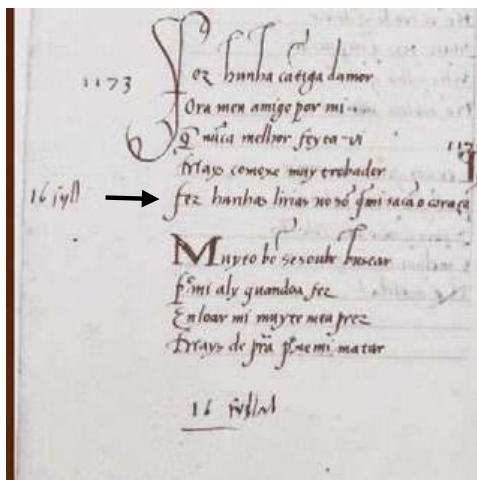 1173
Fez hunha cātiga damor
Ora meu amigo por mi
Q̄ nūca melhor feyta vi
Mays comexe muy trobador
16 syll
fez hunhas lirias no sō q̄mi sacā o coraçō
Muyto bē sesoube buscar
p̄ mi aly quandoa fez
En loar mi muyte meu prez
Mays de prā p̄ xe mi matar
16 syllab